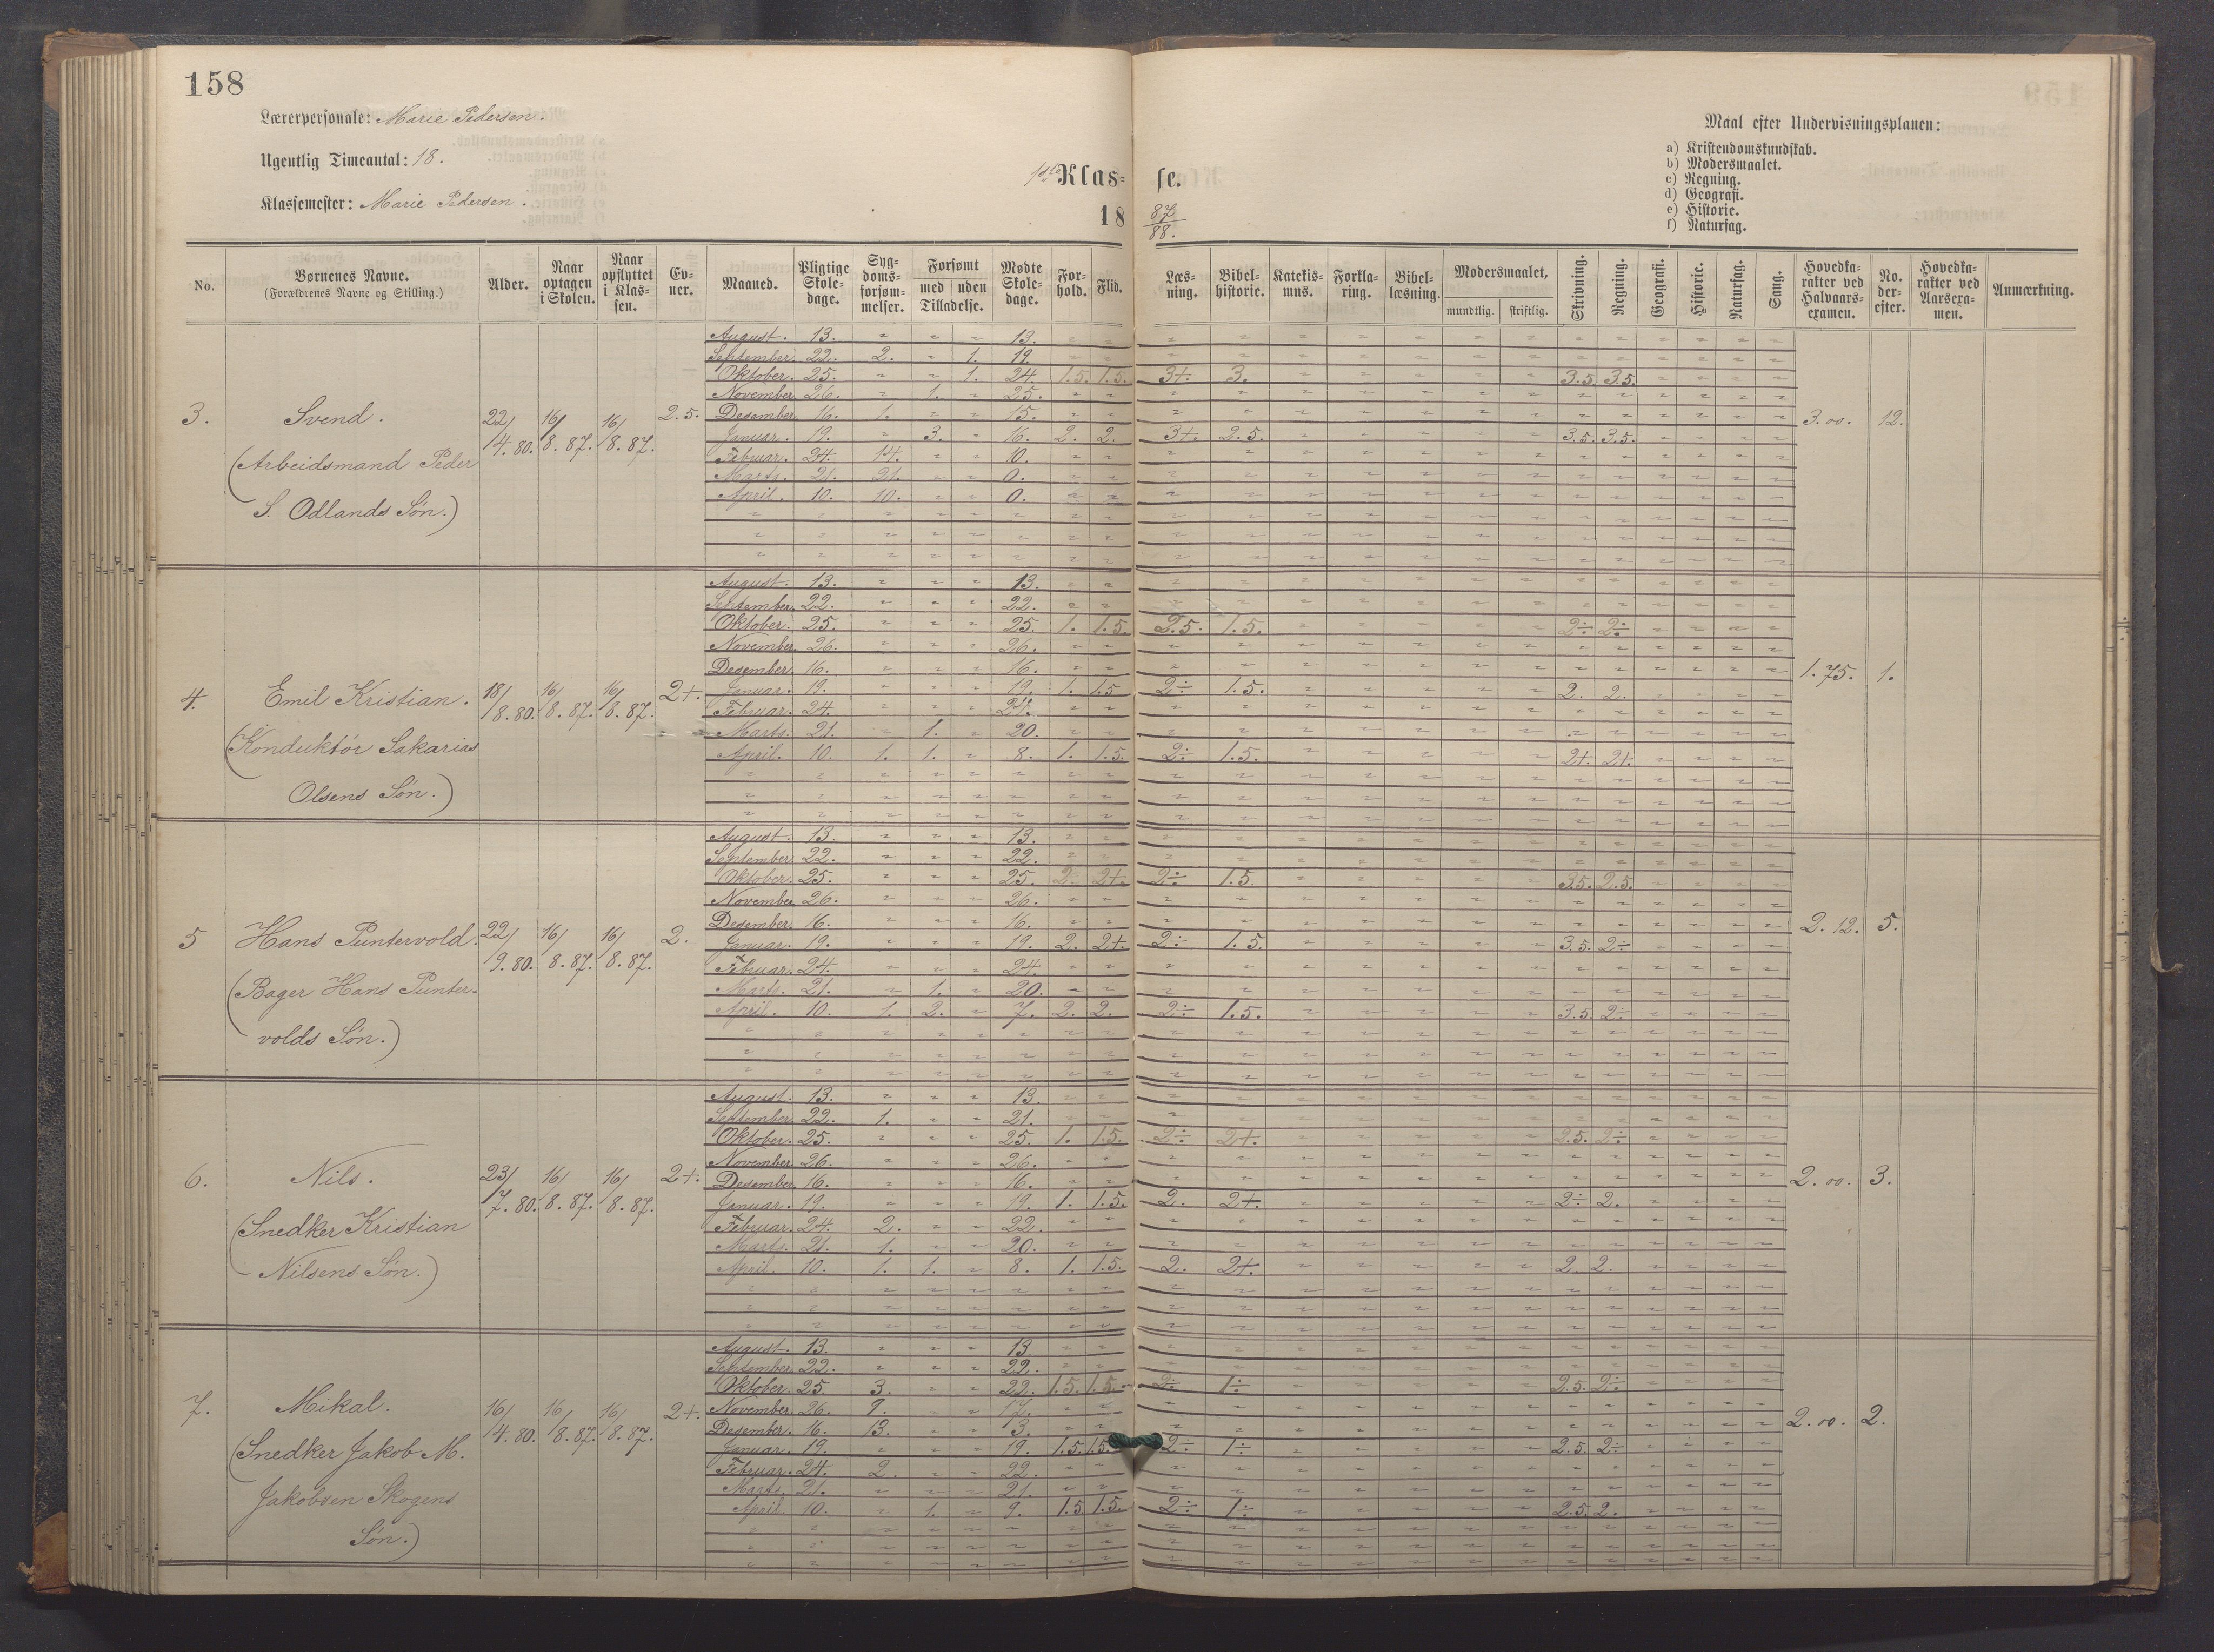 158
Lærerpersonale: Marie Pedersen.
Ugentlig Timeantal: 18.
Klassemester: Marie Pedersen.
1ste Klas- se.
18 87/88.
Maal efter Undervisningsplanen:
a) Kristendomskundskab.
b) Modersmaalet.
c) Regning.
d) Geografi.
e) Historie.
f) Naturfag.
No. Børnenes Navne. (Forældrenes Navne og Stilling.) Alder. Naar optagen i Skolen. Naar opflyttet i Klassen. Evner. Maaned. Pligtige Skoledage. Sygdomsforsømmelser. Forsømt med uden Tilladelse. Mødte Skoledage. Forhold. Flid. Læsning. Bibelhistorie. Katekismus. Forklaring. Bibellæsning. Modersmaalet, mundtlig. skriftlig. Skrivning. Regning. Geografi. Historie. Naturfag. Sang. Hovedkarakter ved Halvaarsexamen. No. derefter. Hovedkarakter ved Aarsexamen. Anmærkning.
3. Svend. (Arbeidsmand Peder S. Odlands Søn.) 22/4.80. 16/8.87. 16/8.87. 2.5. 3.00. 12.
August. 13. " " " 13.
September. 22. 2. " 1. 19.
Oktober. 25. " " 1. 24. 1.5. 1.5. 3+. 3. 3.5. 3.5.
November. 26. " 1. " 25.
Desember. 16. 1. " " 15.
Januar. 19. " 3. " 16. 2. 2. 3+. 2.5. 3.5. 3.5.
Februar. 24. 14. " " 10.
Marts. 21. 21. " " 0.
April. 10. 10. " " 0.
4. Emil Kristian. (Konduktør Sakarias Olsens Søn.) 18/8.80. 16/8.87. 16/8.87. 2+. 1.75. 1.
August. 13. " " " 13.
September. 22. " " " 22.
Oktober. 25. " " " 25. 1. 1.5. 2.5. 1.5. 2÷ 2÷
November. 26. " " " 26.
Desember. 16. " " " 16.
Januar. 19. " " " 19. 1. 1.5 2÷ 1.5. 2. 2.
Februar. 24. " " " 24.
Marts. 21. " 1. " 20.
April. 10. 1. 1. " 8. 1. 1.5. 2÷ 1.5. 2+. 2+.
5 Hans Puntervold. (Bager Hans Puntervolds Søn.) 22/9.80. 16/8.87. 16/8.87. 2. 2.12. 5.
August. 13. " " " 13.
September. 22. " " " 22.
Oktober. 25. " " " 25. 2. 2+. 2÷ 1.5 3.5. 2.5.
November. 26. " " " 26.
Desember. 16. " " " 16.
Januar. 19. " " " 19. 2. 2+. 2÷ 1.5. 3.5. 2÷
Februar. 24. " " " 24.
Marts. 21. " 1. " 20.
April. 10. 1. 2. " 7. 2. 2. 2÷ 1.5. 3.5. 2÷
6. Nils. (Snedker Kristian Nilsens Søn.) 23/7.80. 16/8.87. 16/8.87. 2+. 2.00. 3.
August. 13. " " " 13.
September. 22. 1. " " 21.
Oktober. 25. " " " 25. 1. 1.5. 2÷ 2+. 2.5. 2÷
November. 26. " " " 26.
Desember. 16. " " " 16.
Januar. 19. " " " 19. 1. 1.5. 2. 2+. 2÷ 2.
Februar. 24. 2. " " 22.
Marts. 21. 1. " " 20.
April. 10. 1. 1. " 8. 1. 1.5. 2. 2+. 2. 2.
7. Mikal. (Snedker Jakob M. Jakobsen Skogens Søn.) 16/4.80. 16/8.87. 16/8.87. 2+. 2.00. 2.
August. 13. " " " 13
September. 22. " " " 22.
Oktober. 25. 3. " " 22. 1.5. 1.5. 2÷ 1÷ 2.5. 2÷
November. 26. 9. " " 17.
Desember. 16. 13. " " 3.
Januar. 19. " " " 19. 1.5. 1.5. 2÷ 1÷ 2.5. 2÷
Februar. 24. 2. " " 22.
Marts. 21. " " " 21.
April. 10. " 1. " 9. 1.5. 1.5. 2÷ 1÷ 2.5. 2.